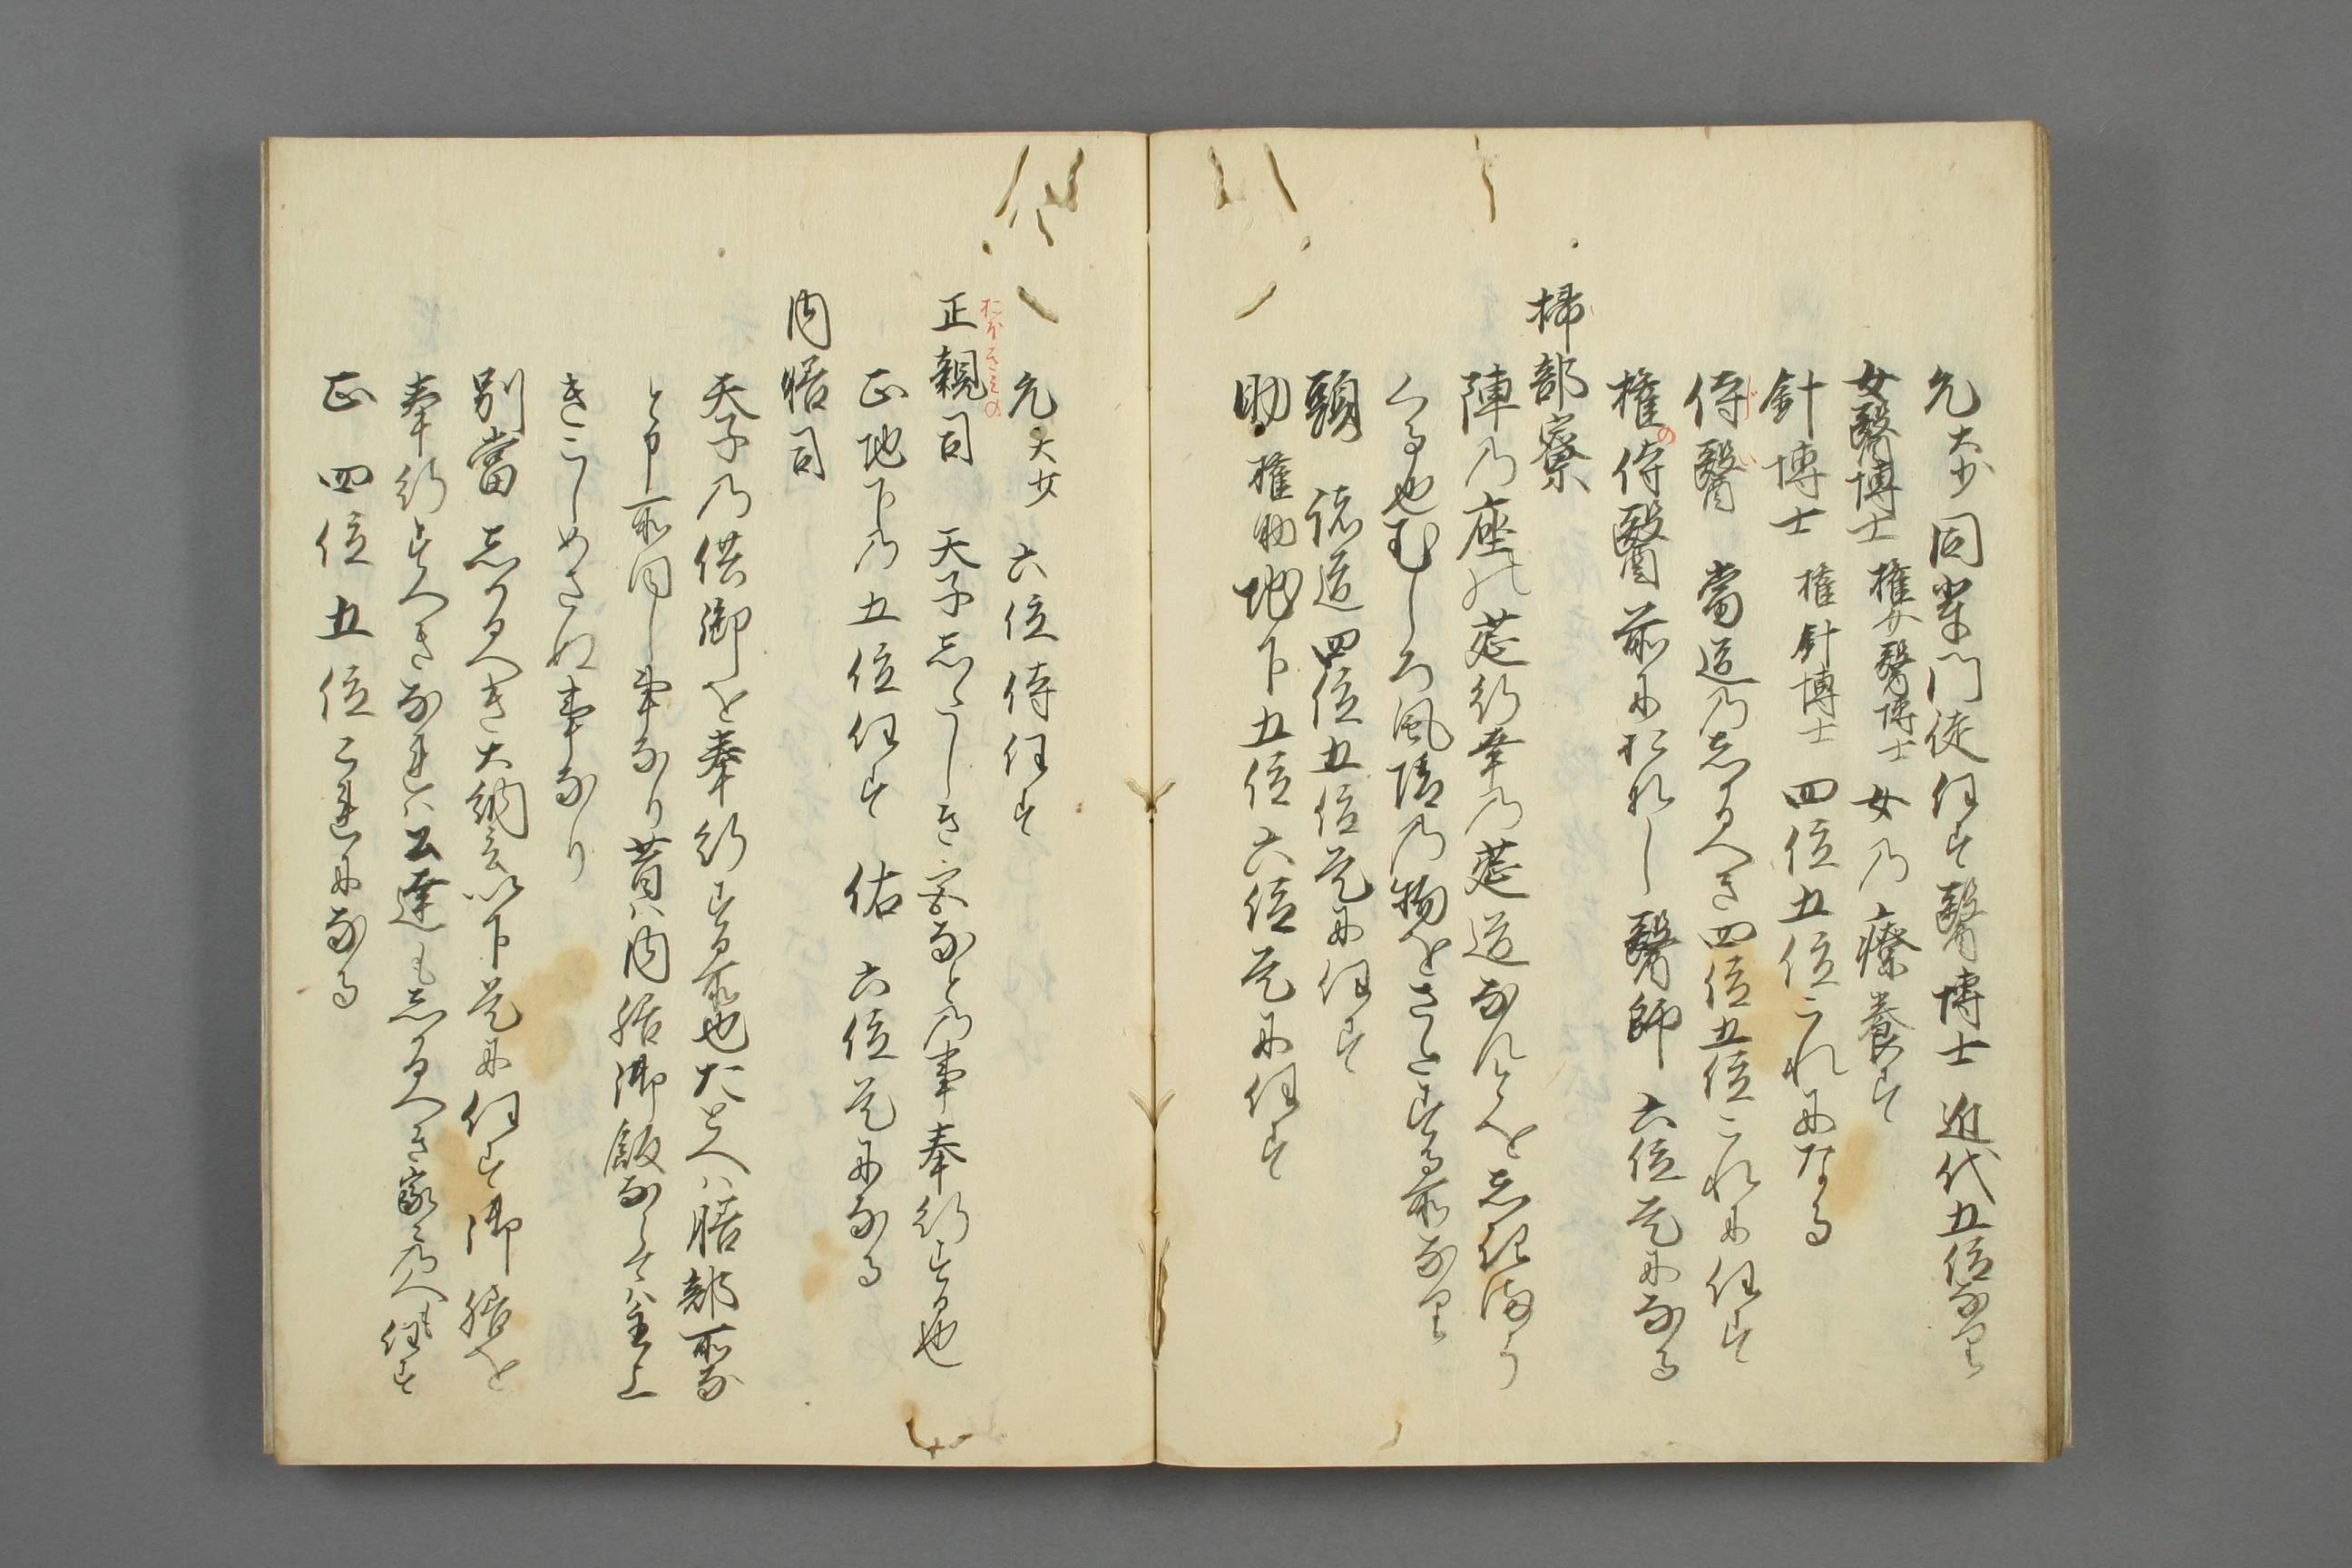 允大少 同輩門徒任す 醫博士 近代五位なり
女醫博士 権女醫博士 女乃療養す
針博士 権針博士 四位五位これになる
侍醫 當道乃しるへき四位五位これに任す
権侍醫 前におなし 醫師 六位是になる
掃部寮
陣乃座の莚行幸乃莚道なんとをしき満う
くる也むしろ風情乃物をさたする所なり
頭 諸道四位五位是に任す
助 権助地下五位六位是に任す
允大少 六位侍任す
正親司 天子したしき家なと乃事奉行する也
おほきみの
正地下乃五位任す 佑 六位是になる
内膳司
天子乃供御を奉行する所也たとへハ膳部所な
と申所同し事なり昔ハ内膳御飯ならてハ主上
きこしめさぬ事なり
別當 しかるへき大納言以下是に任す御膳を
奉行すへきなれハ公達もしかるへき家乃人任す
正 四位五位これになる